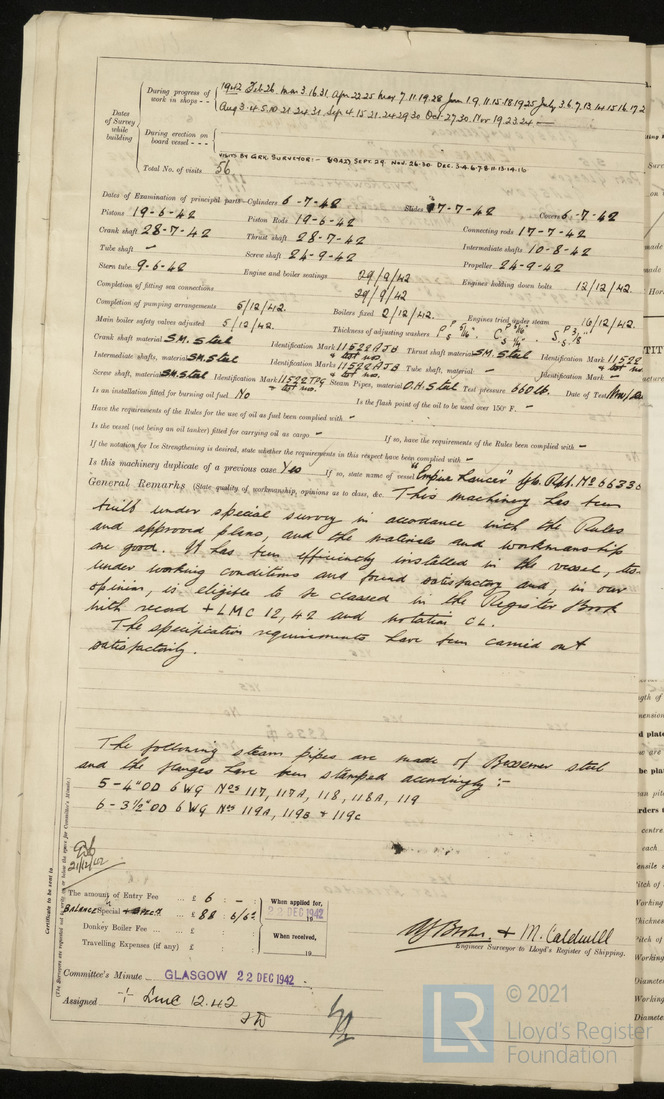 During progress of work in shops - - 1942 Feb 26. Mar 3.16.31. Apr 22.25 May 7.11.19.28 June 1.9.11.15.18.19.25 July 3.6.7.13.14.15.16.17.2
Aug 3.4.5.10.21.24.31. Sep 4.15.21.24.29.30 Oct 27.30. Nov 19.23.24
Dates of Survey while building
During erection on board vessel - - -
VISITS BY GRK. SURVEYOR:- SEPT. 29. NOV. 26.30. DEC. 3.4.6.7.8.11.13.14.16
Total No. of visits 56
Dates of Examination of principal parts—Cylinders 6-7-42 Slides 17-7-42 Covers 6-7-42
Pistons 19-6-42 Piston Rods 19-6-42 Connecting rods 17-7-42
Crank shaft 28-7-42 Thrust shaft 28-7-42 Intermediate shafts 10-8-42
Tube shaft - Screw shaft 24-9-42 Propeller 24-9-42
Stern tube 9-6-42 Engine and boiler seatings 29/9/42 Engines holding down bolts 12/12/42.
Completion of fitting sea connections 29/9/42
Completion of pumping arrangements 5/12/42. Boilers fixed 2/12/42. Engines tried under steam 16/12/42.
Main boiler safety valves adjusted 5/12/42. Thickness of adjusting washers
Crank shaft material S.M. Steel Identification Mark 11522 AJB & test nos. Thrust shaft material S.M. Steel Identification Mark 11522
Intermediate shafts, material S.M. Steel Identification Marks 11522 AJB & test nos. Tube shaft, material - Identification Mark -
Screw shaft, material S.M. Steel Identification Mark 11522 TPG & test nos. Steam Pipes, material O.H. Steel Test pressure 660 lb. Date of Test
Is an installation fitted for burning oil fuel No Is the flash point of the oil to be used over 150° F. -
Have the requirements of the Rules for the use of oil as fuel been complied with -
Is the vessel (not being an oil tanker) fitted for carrying oil as cargo - If so, have the requirements of the Rules been complied with -
If the notation for Ice Strengthening is desired, state whether the requirements in this respect have been complied with -
Is this machinery duplicate of a previous case Yes If so, state name of vessel "Empire Lancer" Gls. Rpt. No 66330
General Remarks (State quality of workmanship, opinions as to class, &c. This machinery has been
built under special survey in accordance with the Rules
and approved plans, and the materials and workmanship
are good. It has been efficiently installed in the vessel, tes-
under working conditions and found satisfactory and, in our
opinion, is eligible to be classed in the Register Book
with record + LMC 12,42 and notation CL.
The specification requirements have been carried out
satisfactorily.
The following steam pipes are made of Bessemer steel
and the flanges have been stamped accordingly :-
5 - 4" OD 6 WG Nos 117, 117A, 118, 118A, 119
6 - 3½" OD 6 WG Nos 119A, 119B & 119C
21/12/42
Certificate to be sent to
The amount of Entry Fee ... £ 6 : - :
BALANCE Special ... £ 88 : 6/6d :
Donkey Boiler Fee ... £ : :
Travelling Expenses (if any) £ : :
When applied for,
22 DEC 1942
19
When received,
19
+ M. Caldwell
Engineer Surveyor to Lloyd's Register of Shipping.
Committee's Minute GLASGOW 22 DEC 1942
Assigned + LMC 12.42
© 2021
LR
Lloyd's Register
Foundation